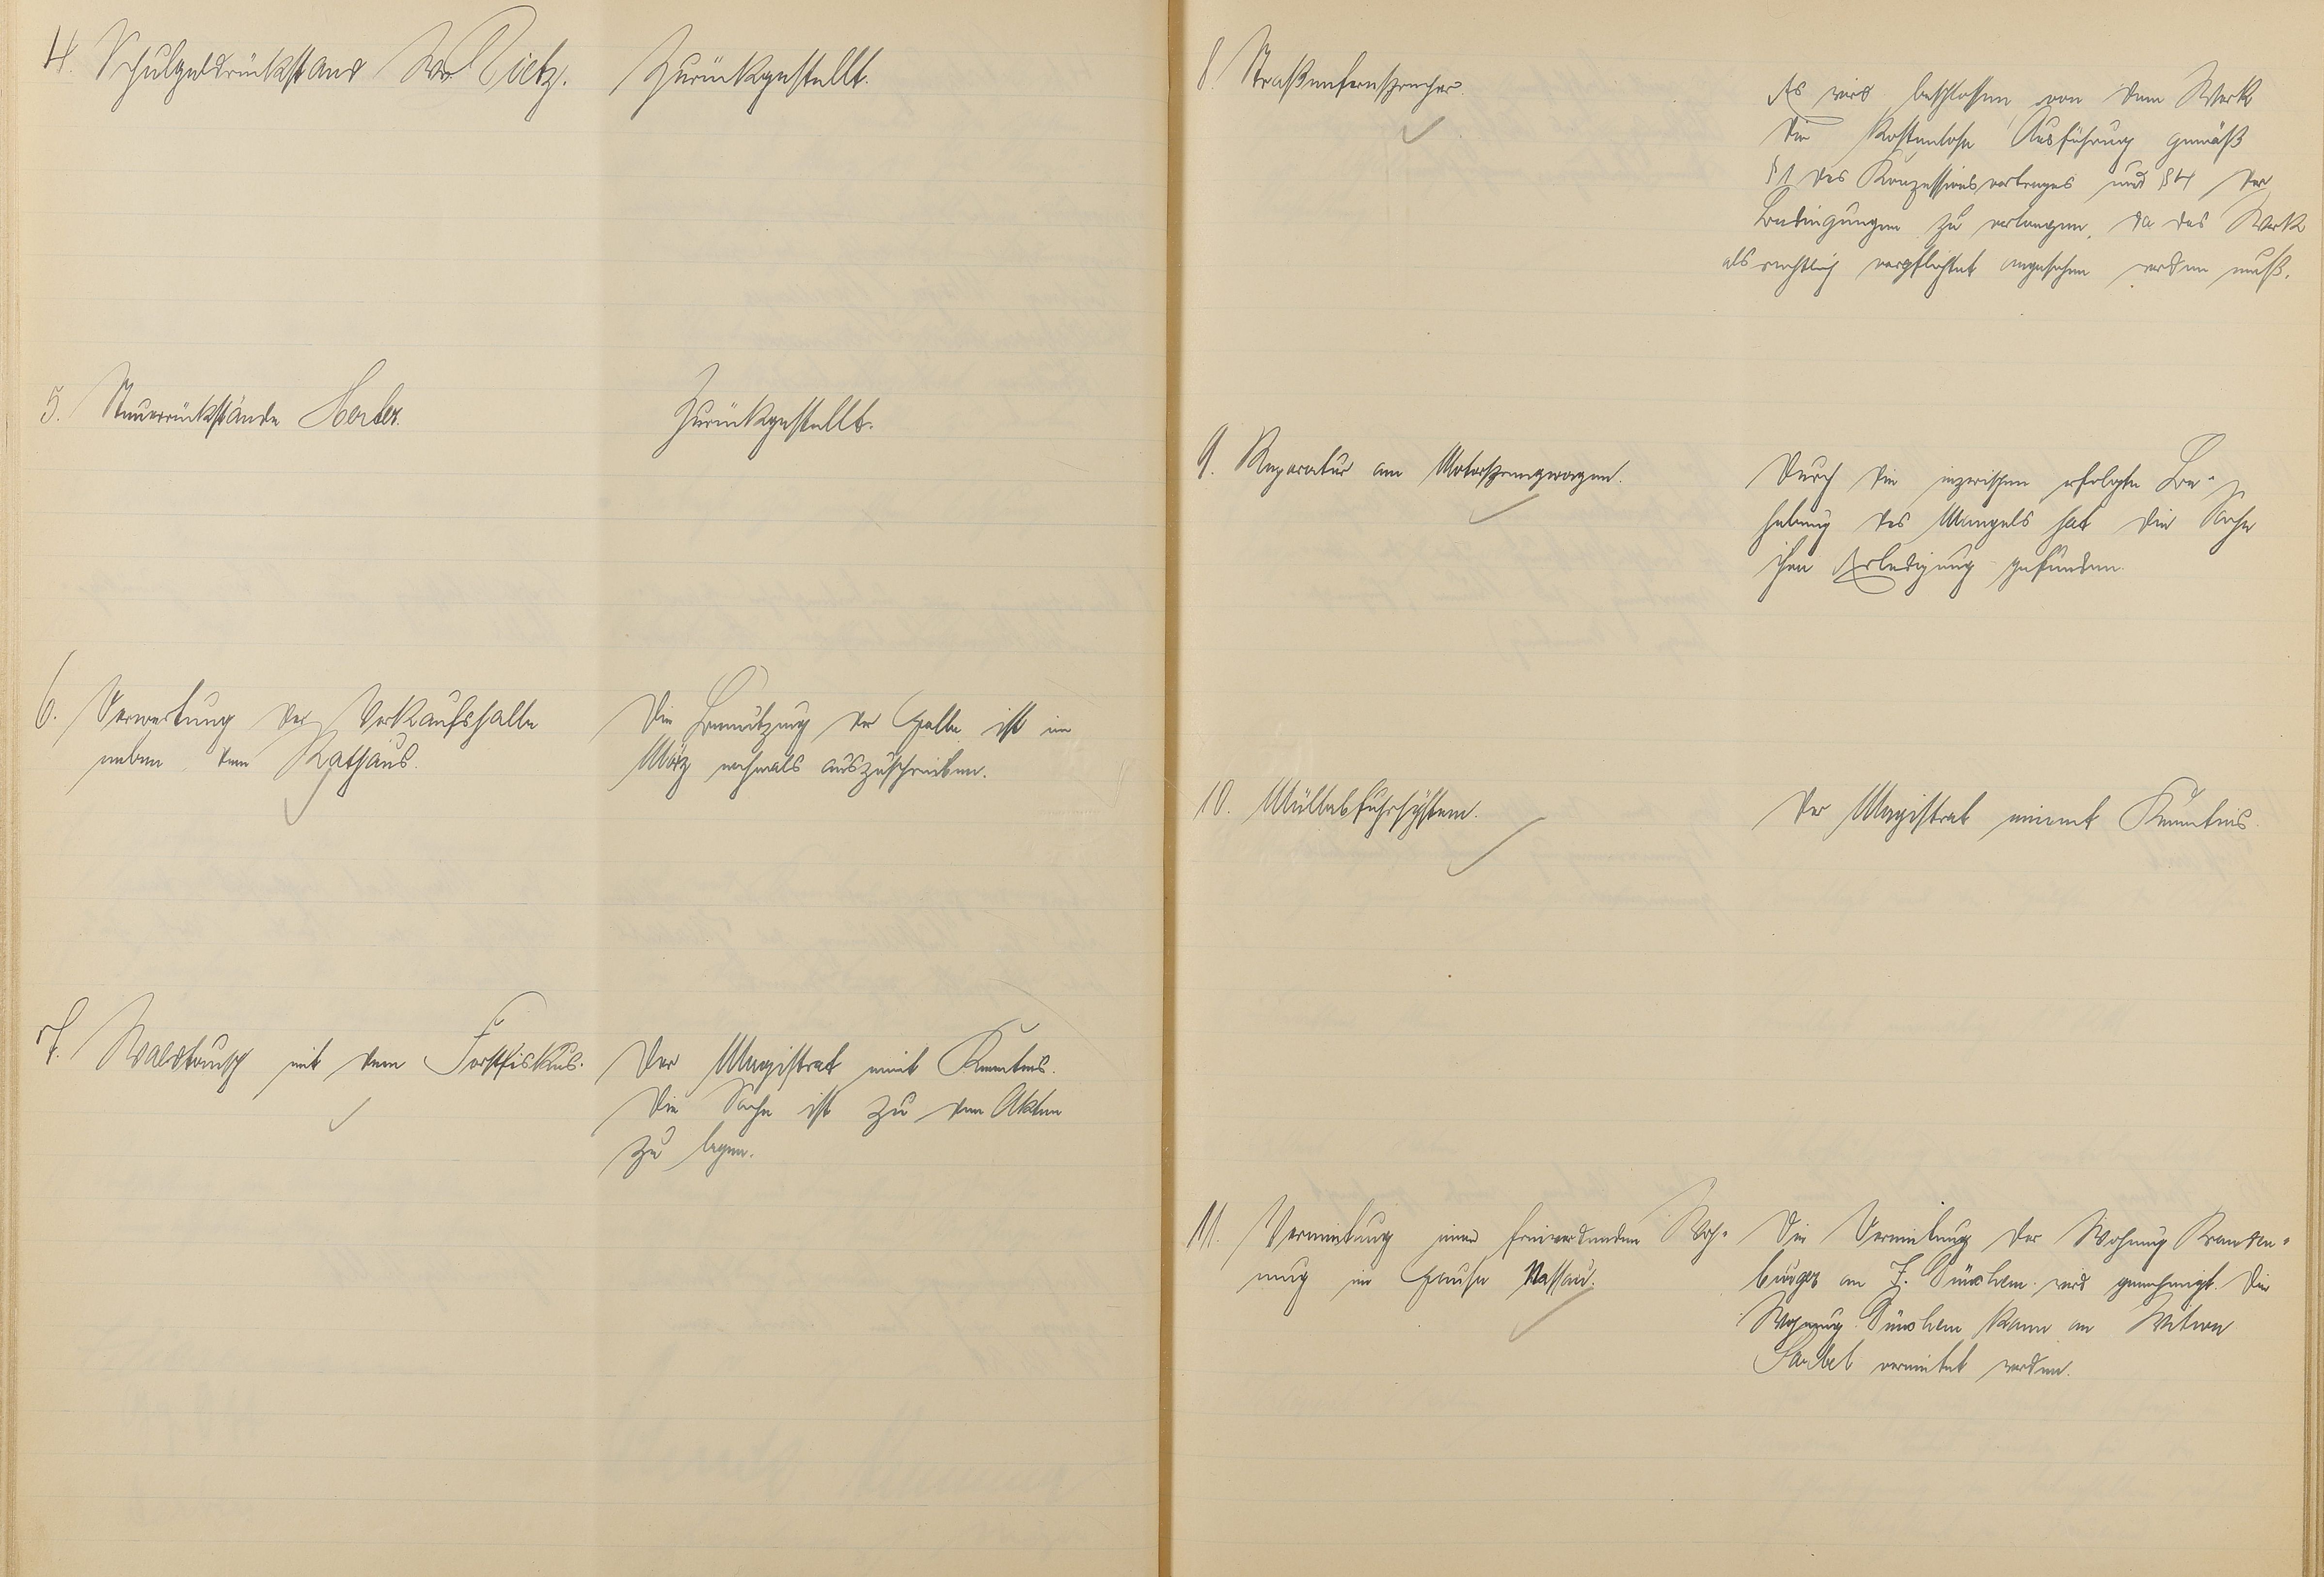 4. Schulgeldrückstand Ww. Dietz.
Zurückgestellt.
5. Steuerrückstände Herber.
Zurückgestellt.
6. Verwertung der Verkaufshalle
neben dem Rathaus.
Die Benützung der Halle ist im
März nochmals auszuschreiben.
7. Waldtausch mit dem Forstfiskus.
Der Magistrat nimt Kenntnis.
Die Sache ist zu den Akten
zu legen.
8. Straßenfernsprecher.
Es wird beschlossen von dem Werk
die kostenlose Ausführung gemäß
§ 1 des Konzessionsvertrages und § 4 der
Bedingungen zu verlangen, da das Werk
als rechtlich verpflichtet angesehen werden muß.
9. Reparatur am Motorsprengwagen.
Durch die inzwischen erfolgte Be-
hebung des Mangels hat die Sache
ihre Erledigung gefunden.
10. Müllabfuhrsystem.
Der Magistrat nimmt Kenntnis.
11. Vermietung einer freiwerdenden Woh-
nung im Hause Nassau.
Die Vermietung der Wohnung Branden-
burger an J. wird genehmigt. Die
Wohnung kann an Witwe
vermietet werden.